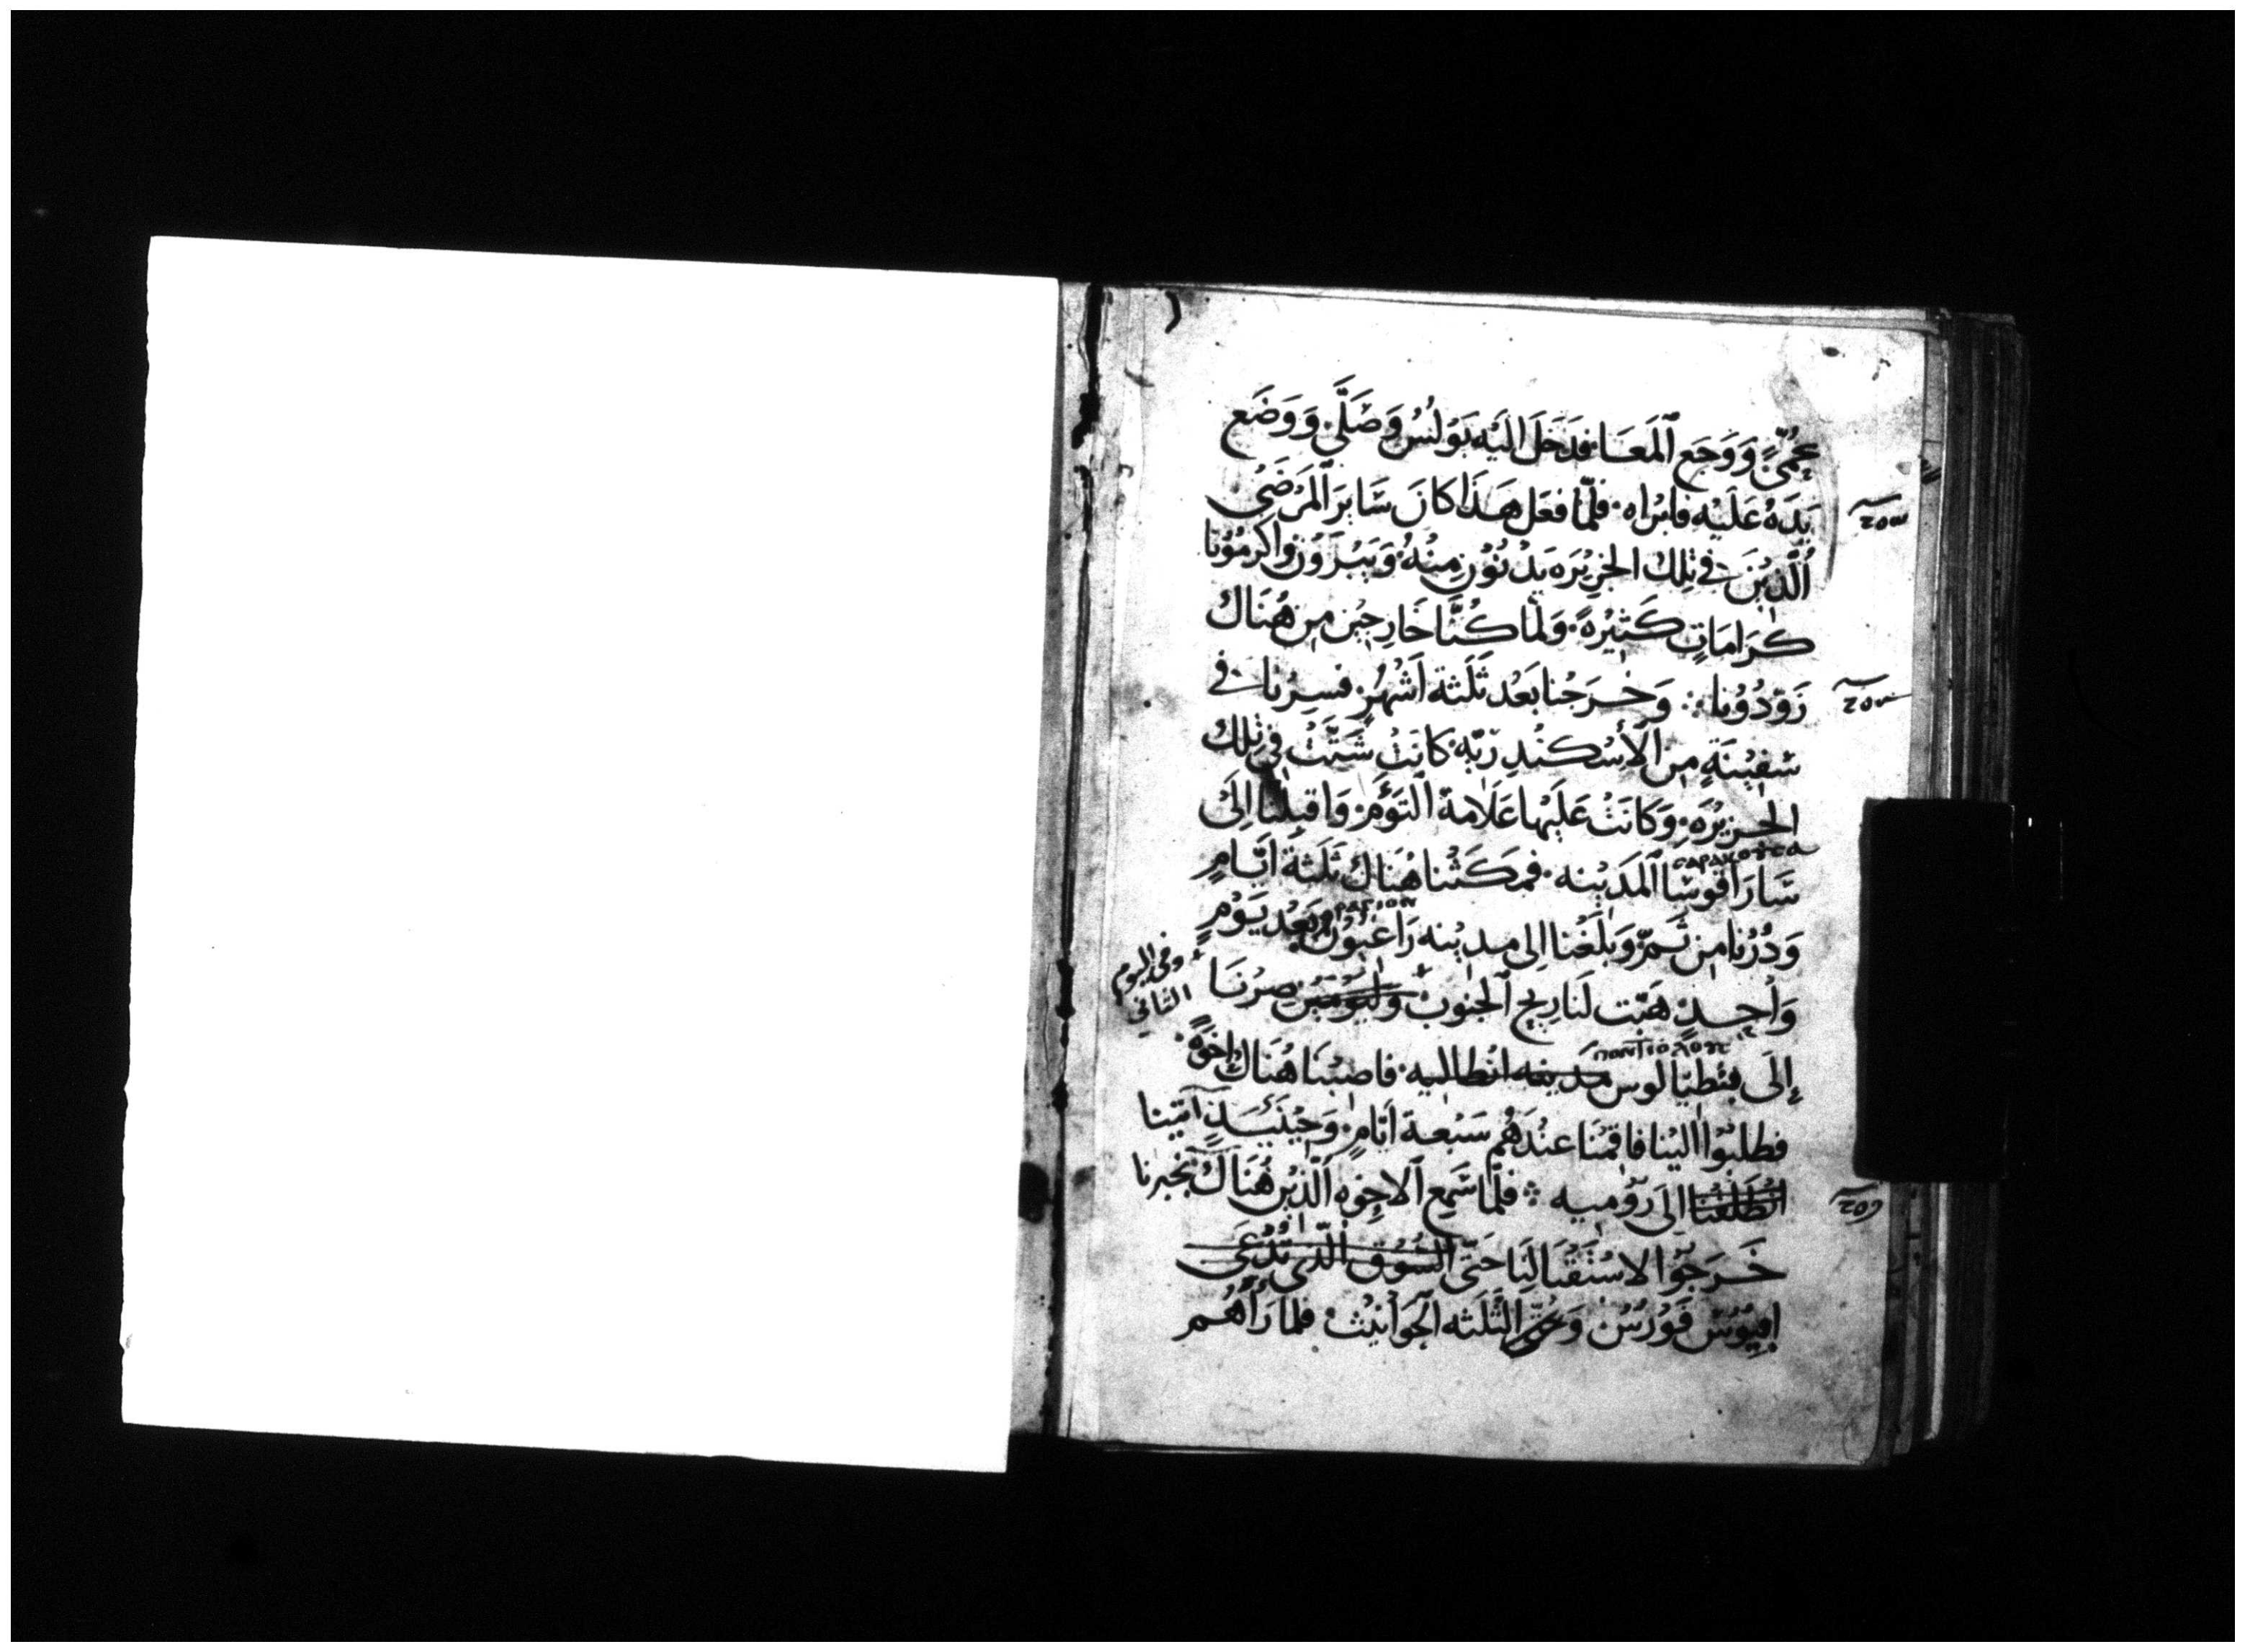 بِحُمَّى وَوَجَع ٱلمَعَا. فدَخَلَ الَيْهِ بَوْلُسُ وَصَلَّى وَوَضَع
يَدَهُ عَلَيْهِ فابْراه. فلمّا فعَل هَذَا كانَ سَايرَ ٱلمَرْضَى
ٱلّذيْنَ في تِلك الجَزِيْرَه يَدْنُوْن مِنْهُ. وَيَبْرَؤُن واكرَمُوْنا
كَرَامَاتٍ كَثِيْرَهً. وَلمّا كُنَّا خَارِجيْن مِن هُنَاك
زَوّدُوْنا ۞ وَخَرَجْنا بَعْد ثَلَثة اَشْهُرٍ. فسِرْنا في
سَفِيْنَةٍ مِن الأسْكَنْدِريّه. كانَتْ شَتَّتْ في تِلك
الجَزِيْرَه. وَكانَتْ عَليْها عَلَامة ٱلتَوْءَم. وَاقبلْنا اِلىَ
سَارَاقوسَا ٱلمَدِيْنه. فمَكَثْنا هُنَاك ثَلَثةَ ايّامٍ
وَدُرْنا مِن ثَمّ وَبَلَغْنا اِلى مدِيْنه رَاغِيُوْن. وَبَعْد يَوْمٍ
ΡΑΓΙΟΝ
وَاحِدٍ هَبّت لنَا رِيح ٱلجنوب + وَليَوْمَيْن صِرْنَا
+ وفي اليوم
الثاني
إلَى فنطيَالوس مدينه انطاليه. فاصَبْنا هُنَاك اِخوَةً.
فطلبُوْا اليْنا فاقمْنَا عنْدَهُم سَبْعة ايّامٍ. وَحِيْنَئِذٍ اتيْنا
انْطَلَقْنا اِلىَ رُوْميه ۞ فلمّا سَمِع ٱلاخِوه ٱلّذيْن هُنَاك بخبرنا
خَرَجُوْا لاسْتقْبَالِنَا حَتّى السُّوْق الّذي تُدْعَى
افيُوْسْ فَوْرُسْ. وَحَتّى الثَّلَثه الحَوَانيْث. فلمّا رَاَهُم